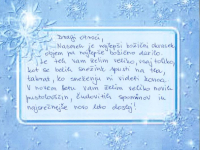 Dragi otroci,
Nasmeh je najlepši božični okrasek,
objem pa najlepše božično darilo.
Je teh vam želim veliko, vsaj toliko,
kot se belih snežink spusti na tla,
takrat, ko sneženju ni videti konca.
V novem letu vam želim veliko novih
pustolovščin, čudovitih spominov in
najsrečnejše novo leto doslej!